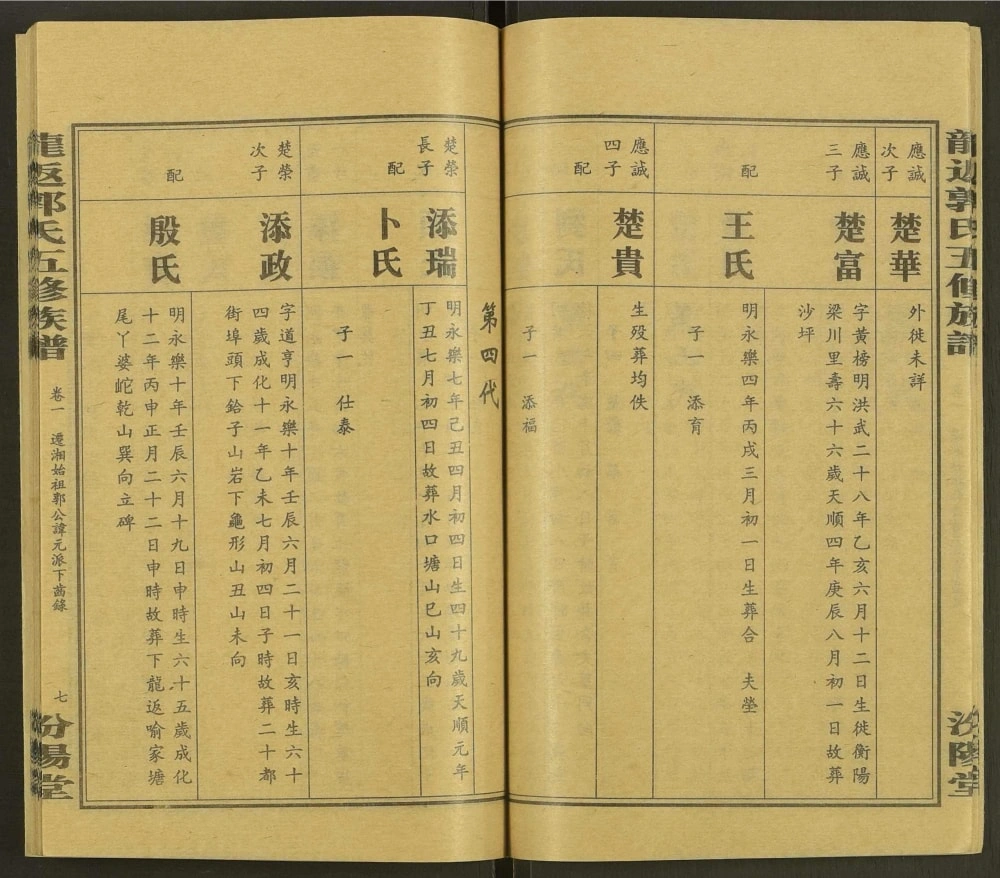 龍返郭氏五修族譜
汾陽堂
應誠
次子
楚華
外徙未詳
應誠
三子
楚富
字黃榜明洪武二十八年乙亥六月十二日生徙衡陽
梁川里壽六十六歲天順四年庚辰八月初一日故葬
沙坪
配
王氏
明永樂四年丙戌三月初一日生葬合 夫塋
子一 添育
應誠
四子
楚貴
生歿葬均佚
配
子一 添福
第四代
楚榮
長子
添瑞
明永樂七年己丑四月初四日生四十九歲天順元年
丁丑七月初四日故葬水口塘山巳山亥向
配
卜氏
子一 仕泰
楚榮
次子
添政
字道亨明永樂十年壬辰六月二十一日亥時生六十
四歲成化十一年乙未七月初四日子時故葬二十都
街埠頭下鉿子山岩下龜形山丑山未向
配
殷氏
明永樂十年壬辰六月十九日申時生六十五歲成化
十二年丙申正月二十二日申時故葬下龍返喻家塘
尾丫婆岮乾山巽向立碑
龍返郭氏五修族譜
卷一 遷湘始祖郭公諱元派下齒錄
七
汾陽堂